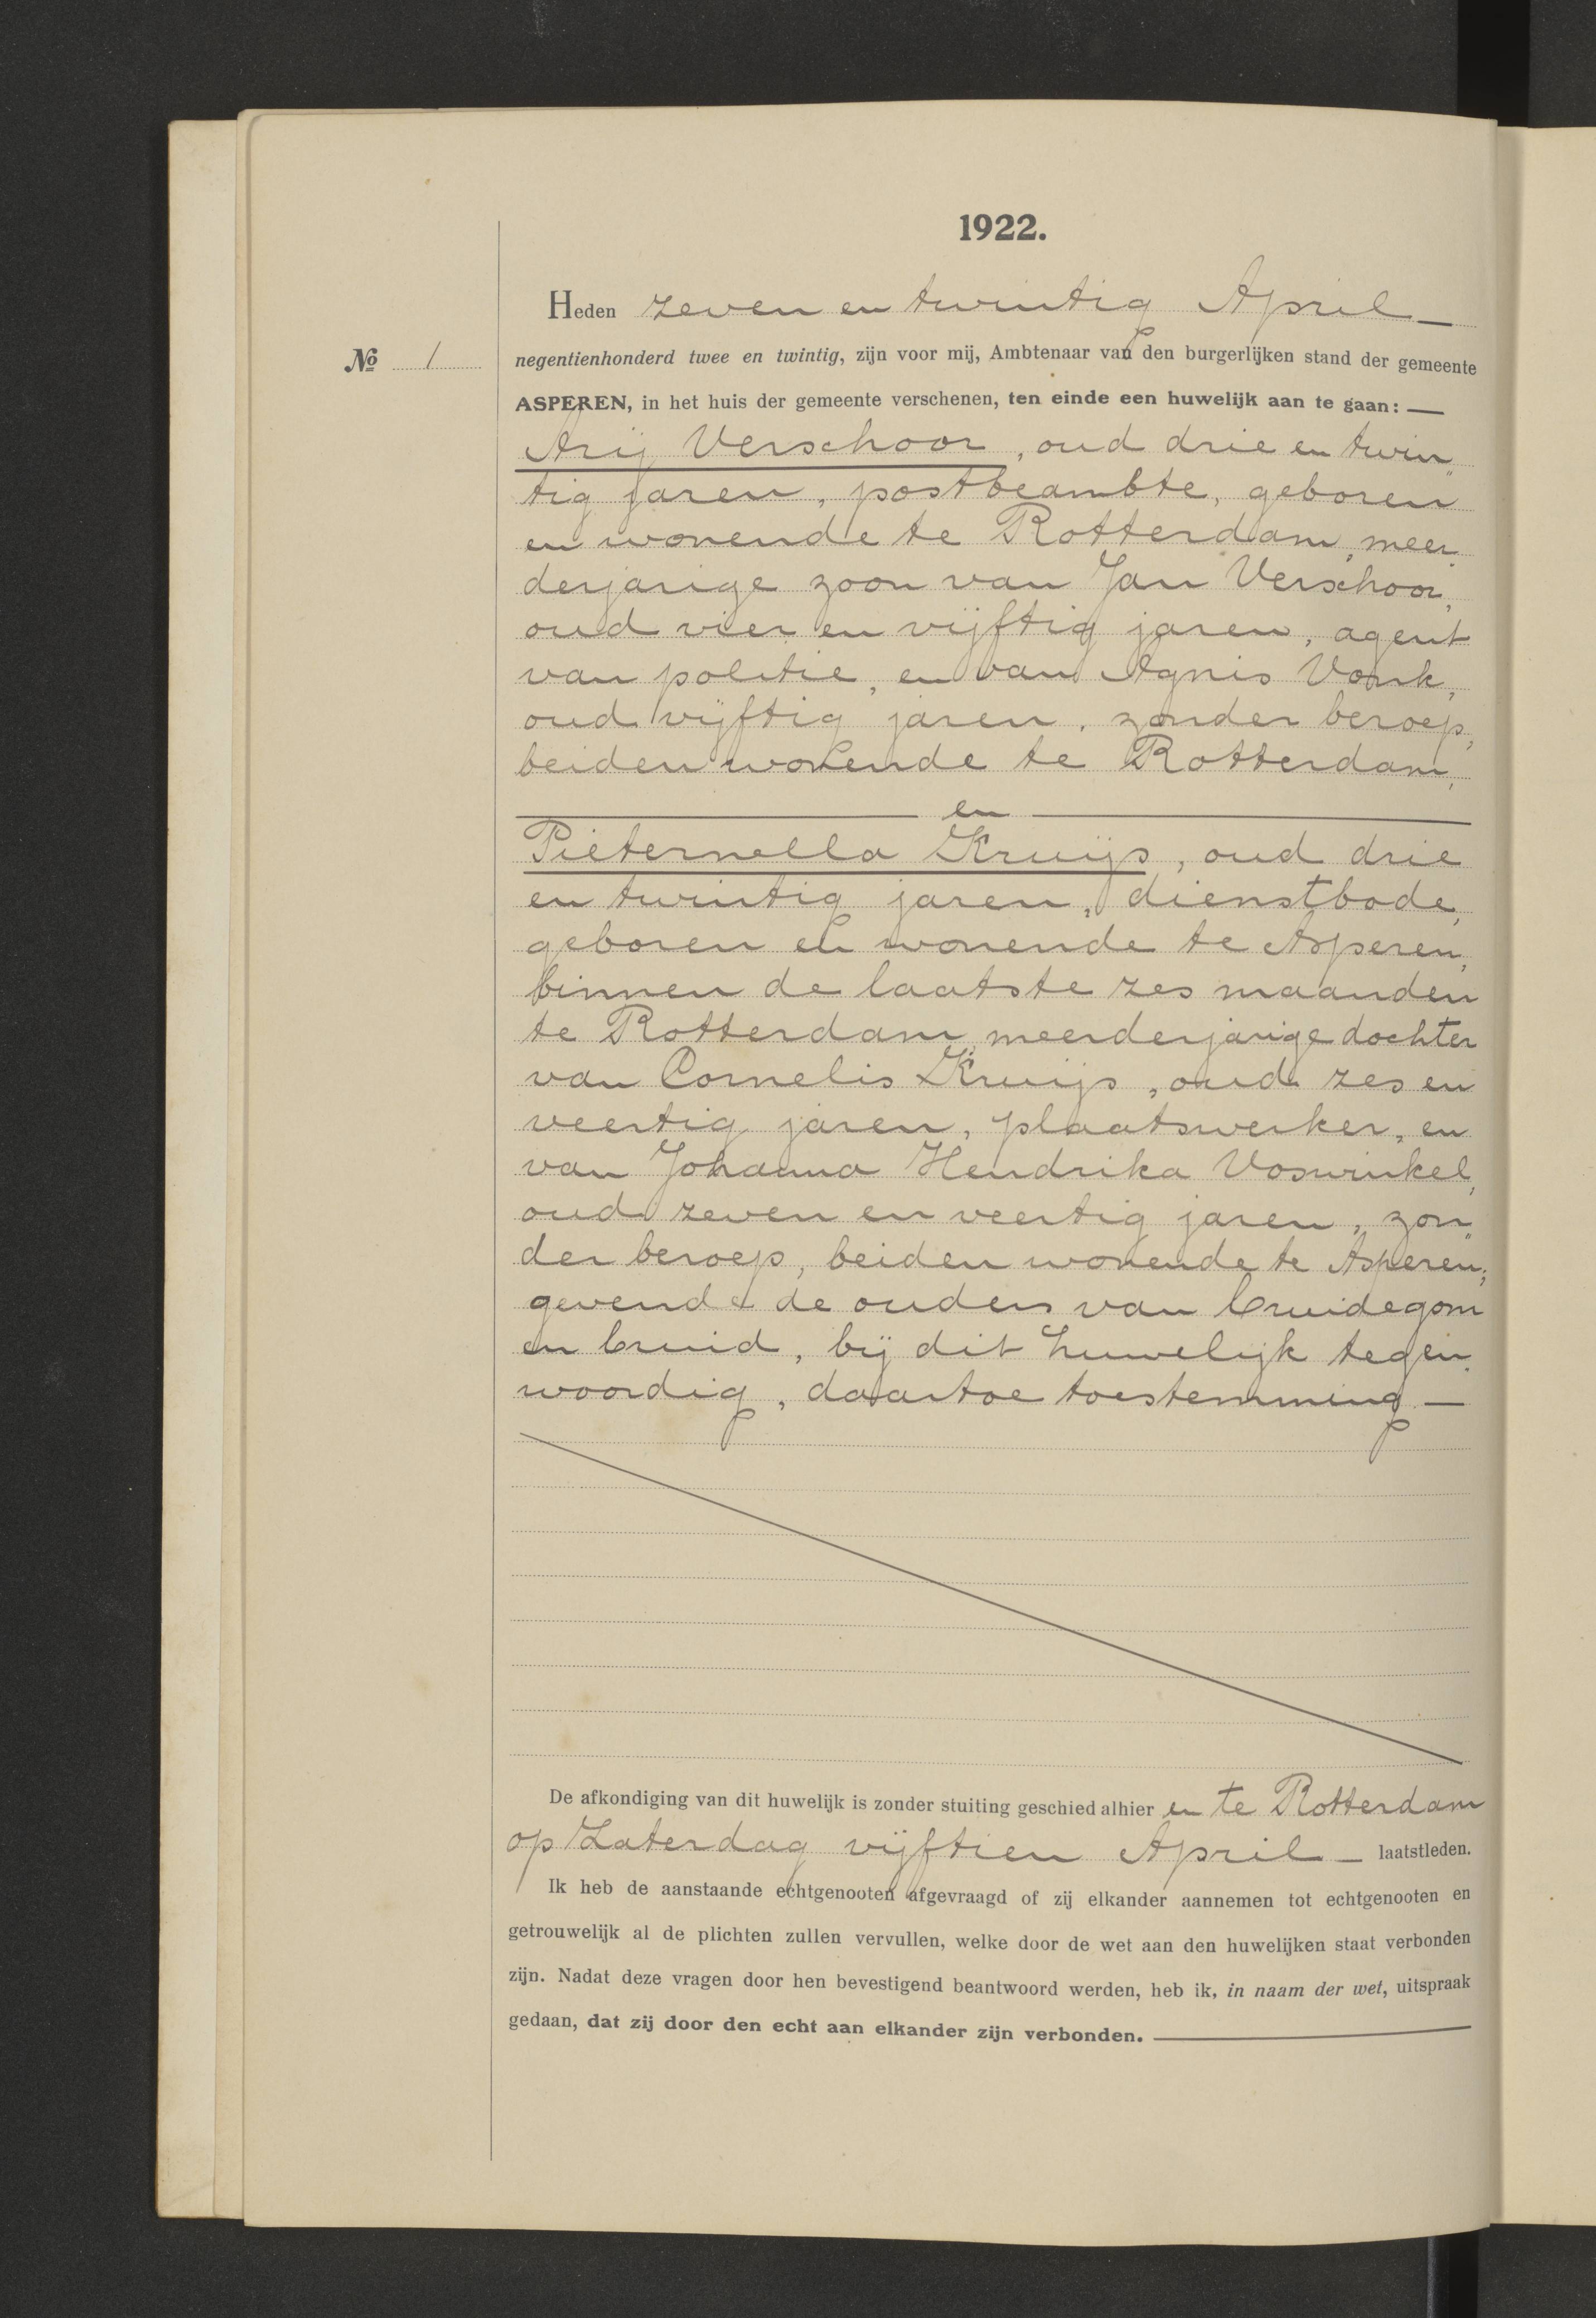 1922.
Heden zeven en twintig April —
No 1
negentienhonderd twee en twintig, zijn voor mij, Ambtenaar van den burgerlijken stand der gemeente
ASPEREN, in het huis der gemeente verschenen, ten einde een huwelijk aan te gaan: —
Arij Verschoor, oud drie en twin„
tig jaren, postbeambte, geboren
en wonende te Rotterdam, meer„
derjarige zoon van Jan Verschoor,
oud vier en vijftig jaren, agent
van politie, en van Agnis Vonk,
oud vijftig jaren, zonder beroep,
beiden wonende te Rotterdam,
— en —
Pieternella Kruijs, oud drie
en twintig jaren, dienstbode,
geboren en wonende te Asperen,
binnen de laatste zes maanden
te Rotterdam, meerderjarige dochter
van Cornelis Kruijs, oud zes en
veertig jaren, plaatswerker, en
van Johanna Hendrika Voswinkel,
oud zeven en veertig jaren, zon„
der beroep, beiden wonende te Asperen;
gevende de ouders van bruidegom
en bruid, bij dit huwelijk tegen„
woordig, daartoe toestemming —
De afkondiging van dit huwelijk is zonder stuiting geschied alhier en te Rotterdam
op Zaterdag vijftien April — laatstleden.
Ik heb de aanstaande echtgenooten afgevraagd of zij elkander aannemen tot echtgenooten en
getrouwelijk al de plichten zullen vervullen, welke door de wet aan den huwelijken staat verbonden
zijn. Nadat deze vragen door hen bevestigend beantwoord werden, heb ik, in naam der wet, uitspraak
gedaan, dat zij door den echt aan elkander zijn verbonden. —